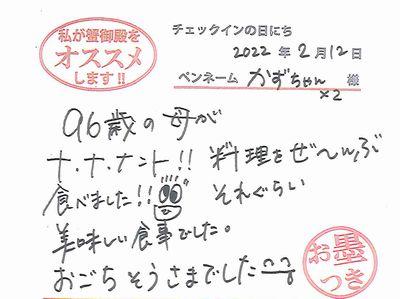 私が蟹御殿を
オススメ
します!!
チェックインの日にち
2022年2月12日
ペンネーム かずちゃん×2 様
96歳の母が
ナ・ナ・ナント!! 料理をぜ〜んぶ
食べました!! それぐらい
美味しい食事でした。
おごちそうさまでした
お墨
つき